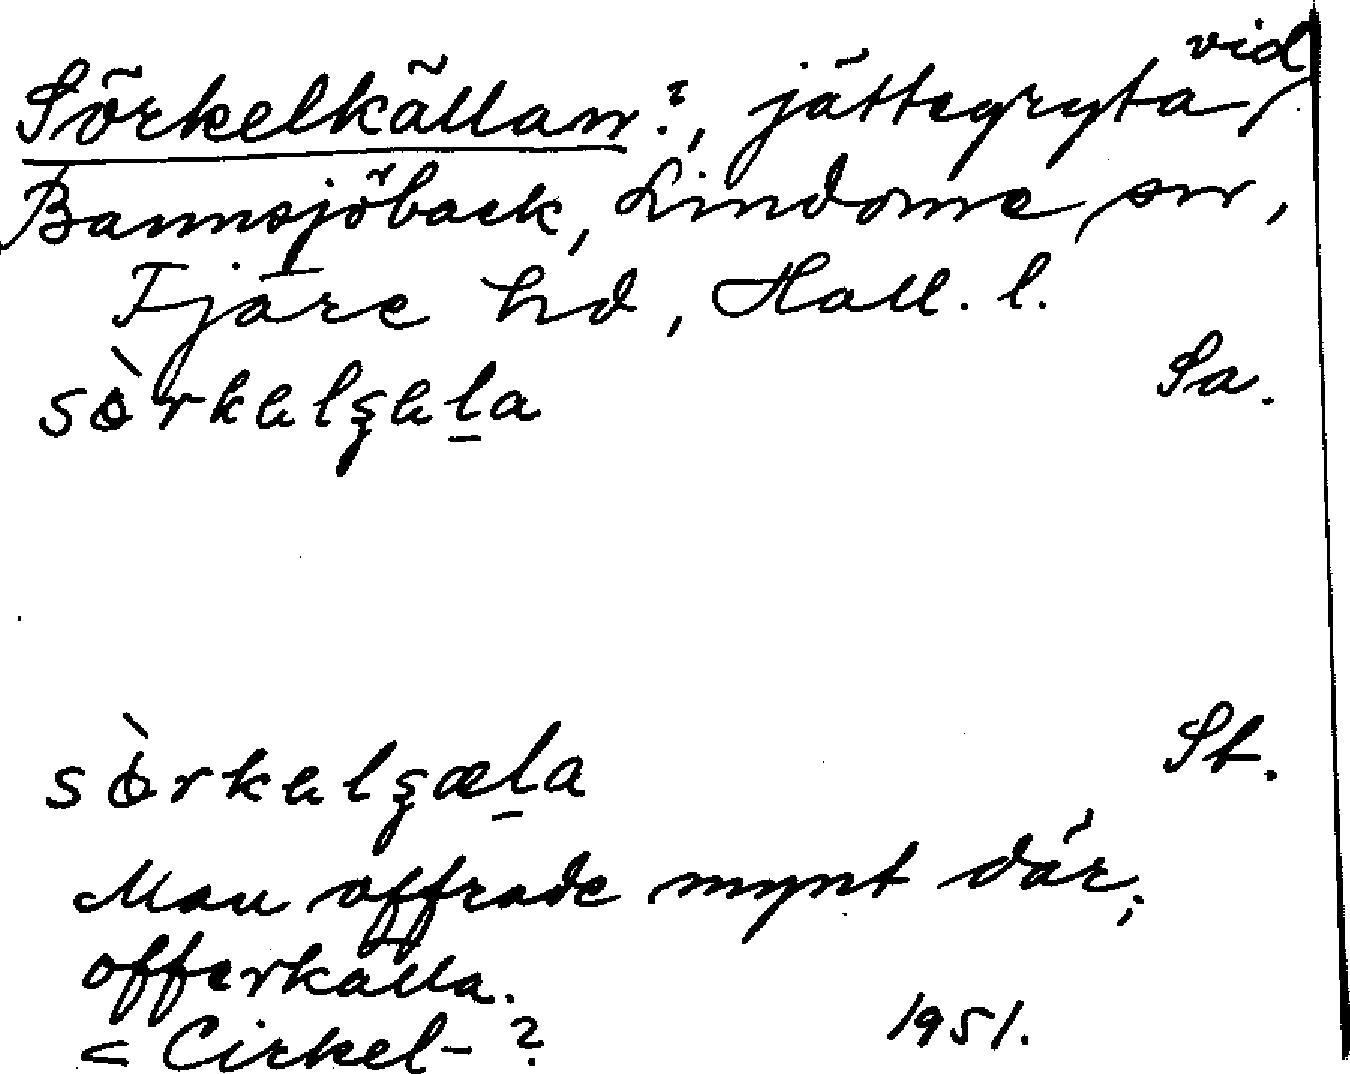 Sörkelkällan?, jättegryta vid
Bannsjöbäck, Lindome sn,
Fjäre hd, Hall. l.
sòrkəlȿəl̠a Sa.
sòrkəlȿæl̠a St.
Man offrade mynt där;
offerkälla.
< Cirkel-? 1951.